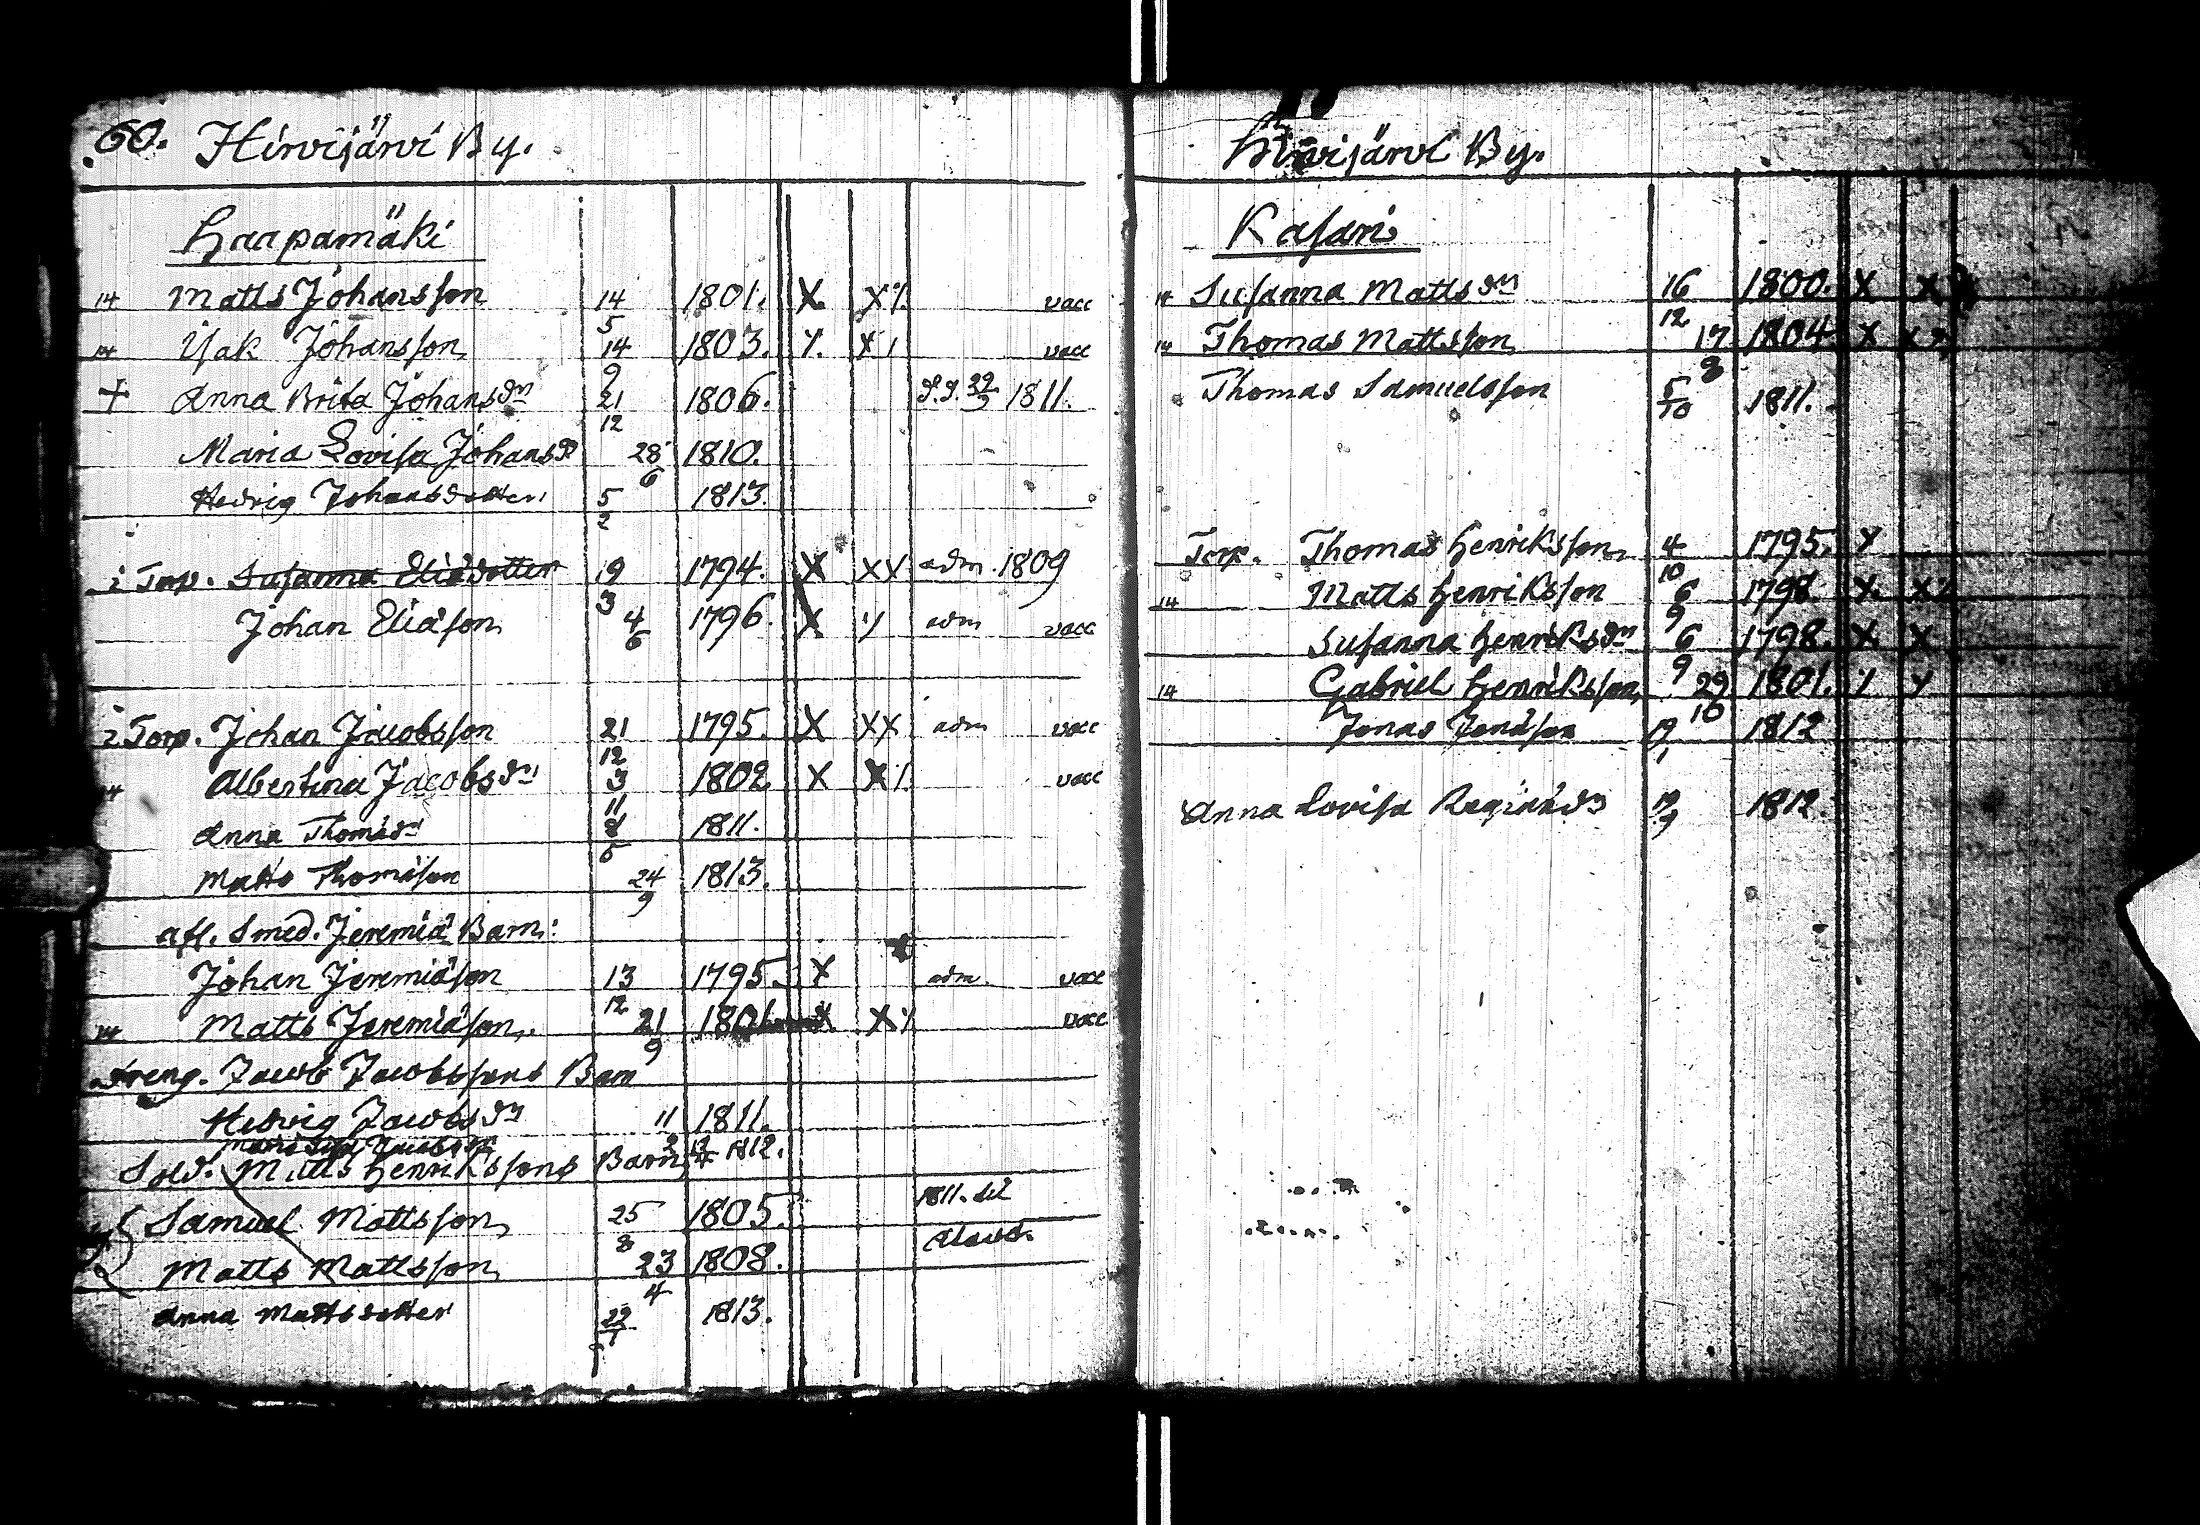 60. Hirvijärvi By.
Haapamäki
14 Matts Johansson 14/5 1801. X XX vacc
14 Isak Johansson 14/9 1803. X. X vacc
+ Anna Brita Johansdr 21/12 1806. 1811.
Maria Lovisa Johansdr 28/6 1810.
Hedvig Johansdotter 5/2 1813.
i Torp. Susanna Eliædotter 19/3 1794. X XX adm. 1809
Johan Eliæson 4/6 1796. X adm vacc
i Torp. Johan Jacobsson 21/12 1795. X XX adm vacc
14 Albertina Jacobsdr 3/11 1802 X X vacc
Anna Thomædr 8/5 1811.
Matts Thomæson 24/9 1813.
afl. Smed. Jeremiæ Barn:
Johan Jeremiæson 13/12 1795. X adm. vacc
14 Matts Jeremiæson 21/9 X X vacc
Dreng. Jacob Jacobssons Barn
Hedvig Jacobsdr 11 1811.
1812.
Sold. Matts Henrikssons Barn
Samuel Mattsson 25/8 1805. 1811. til
Matts Mattsson 23/4 1808.
Anna Mattsdotter 22/1 1813.
Hirvijärvi By.
Kasari
14 Susanna Mattsdr 16/12 1800. X X
14 Thomas Mattsson 17/8 1804 X X
Thomas Samuelsson 5/10 1811.
Torp. Thomas Henriksson 4/10 1795. X
14 Matts Henriksson 6/9 1798 X. X
Susanna Henriksdr 6/9 1798. X. X
14 Gabriel Henriksson 29/10 1801.
Jonas Jonasson 19/1 1812
Anna Lovisa 19/9 1812.